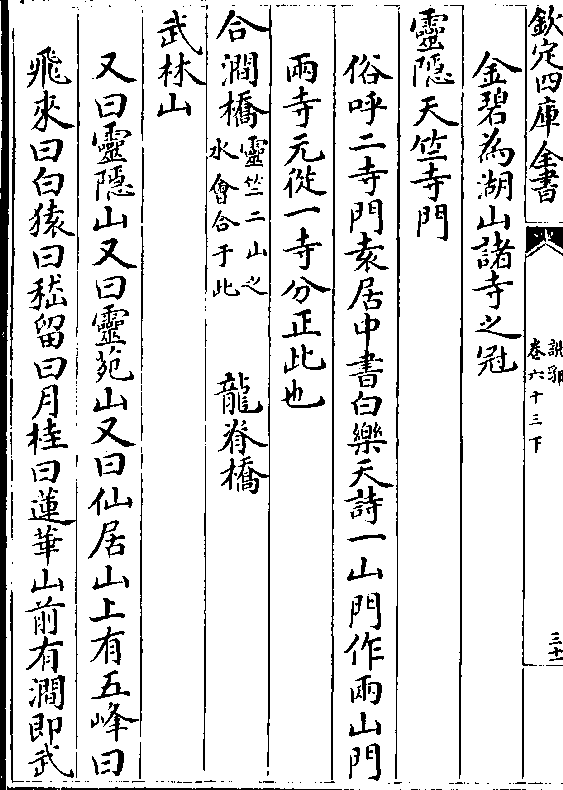 欽定四庫全書
說郛
卷六十三下
三十一
金碧為湖山諸寺之冠
靈隠天竺寺門
俗呼二寺門袁居中書白樂天詩一山門作兩山門
兩寺元從一寺分正此也
合澗橋靈竺二山之
水會合于此
龍脊橋
武林山
又曰靈隠山又曰靈苑山又曰仙居山上有五峰曰
飛來曰白猿曰嵇留曰月桂曰蓮華山前有澗即武